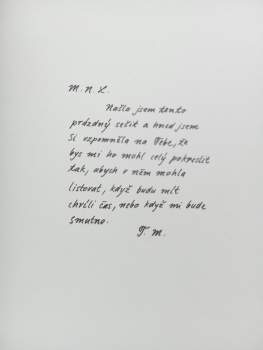 M. N. L.
Našla jsem tento
prázdný sešit a hned jsem
si vzpomněla na Tebe, že
bys mi ho mohl celý pokreslit
tak, abych v něm mohla
listovat, když budu mít
chvíli čas, nebo když mi bude
smutno.
T. M.